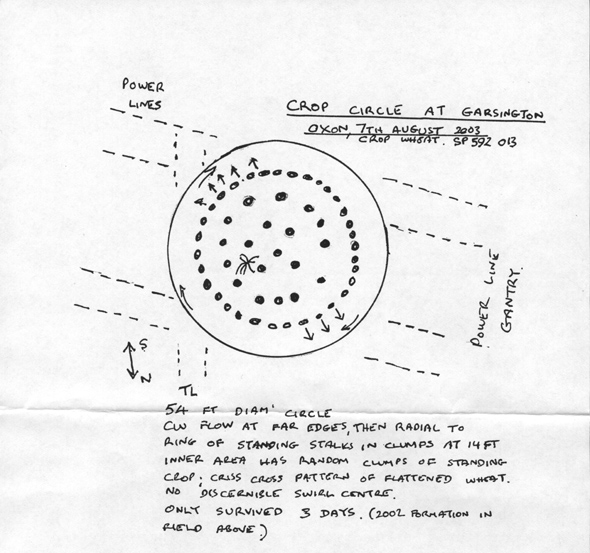 POWER
LINES
CROP CIRCLE AT GARSINGTON
OXON, 7TH AUGUST 2003
CROP WHEAT. SP 592 013
POWER LINE
GANTRY.
S
N
TL
54 FT DIAM' CIRCLE
CW FLOW AT FAR EDGES, THEN RADIAL TO
RING OF STANDING STALKS IN CLUMPS AT 14FT
INNER AREA HAS RANDOM CLUMPS OF STANDING
CROP; CRISS CROSS PATTERN OF FLATTENED WHEAT.
NO DISCERNIBLE SWIRL CENTRE.
ONLY SURVIVED 3 DAYS. (2002 FORMATION IN
FIELD ABOVE.)